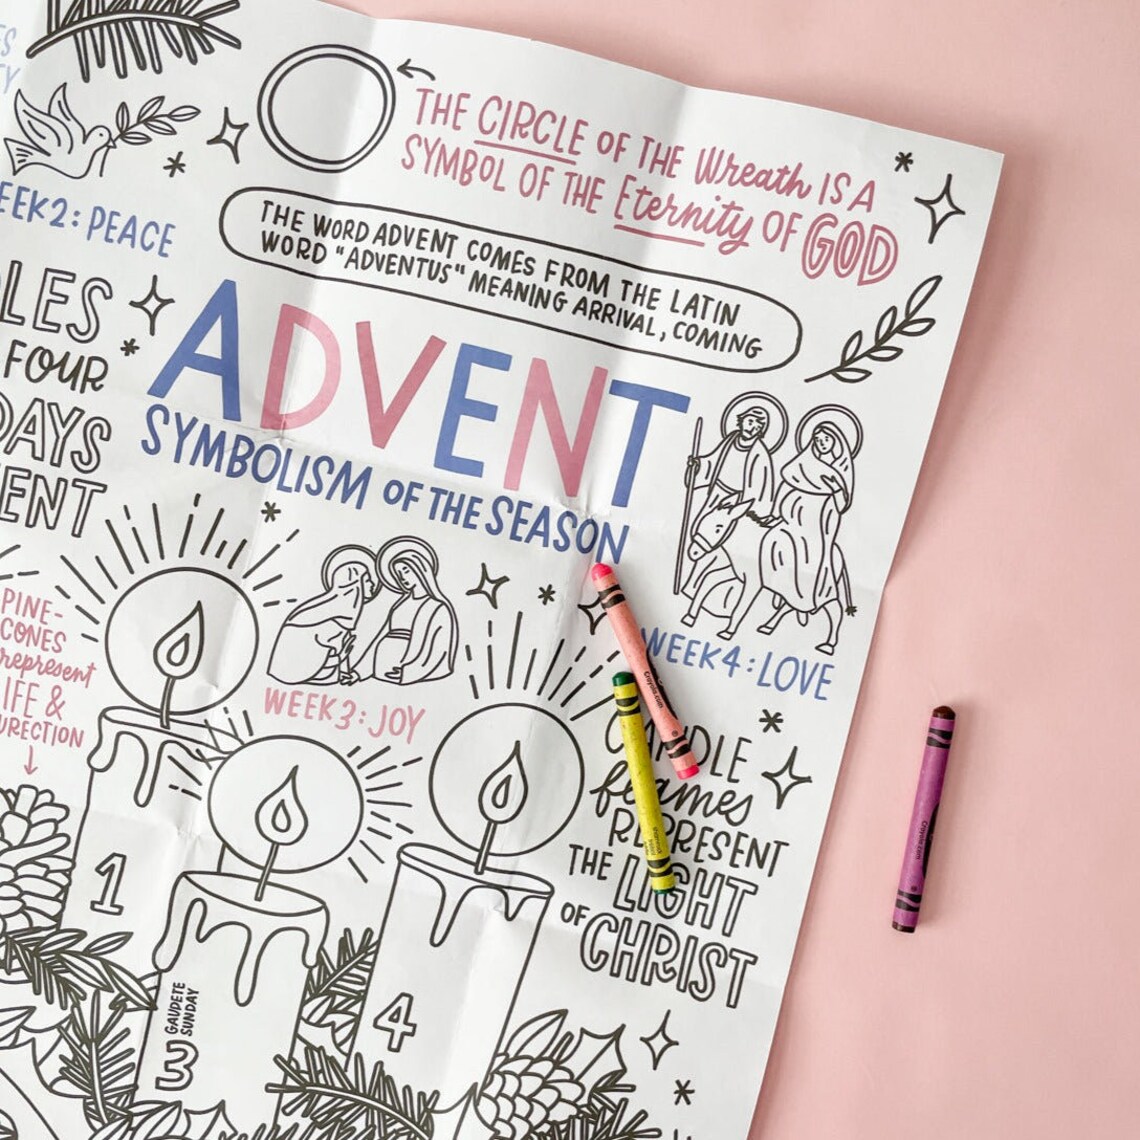 THE CIRCLE OF THE Wreath IS A
SYMBOL OF THE Eternity OF GOD
WEEK2: PEACE
THE WORD ADVENT COMES FROM THE LATIN
WORD "ADVENTUS" MEANING ARRIVAL, COMING
ADVENT
SYMBOLISM OF THE SEASON
FOUR
WEEK 3: JOY
WEEK 4: LOVE
PINE-
CONES
represent
LIFE &
CANDLE
flames
REPRESENT
THE LIGHT
OF CHRIST
1
3 GAUDETE
SUNDAY
4
Crayola.com
Crayola.com